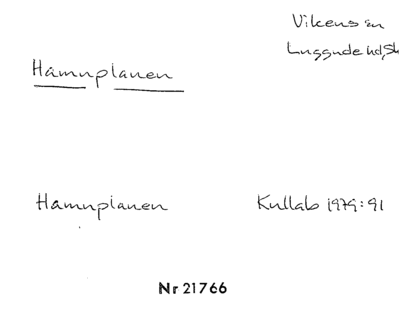 Vikens sn
Luggude hd, Sk
Hamnplanen
Hamnplanen
Kullab 1979:91
Nr 21766